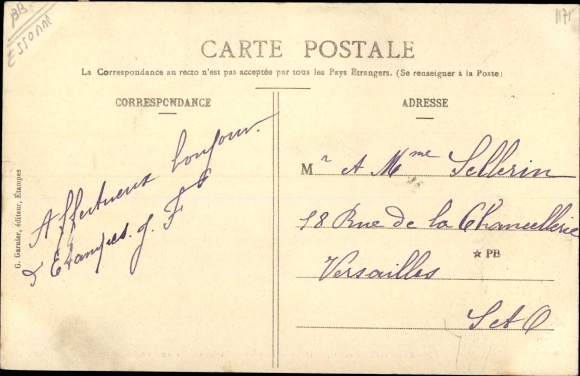 BB
ESSONNE
1175
CARTE POSTALE
La Correspondance au recto n'est pas acceptée par tous les Pays Étrangers. (Se renseigner à la Poste)
CORRESPONDANCE
Affectueux bonjour
d'Étampes. J. F
G. Garnier, éditeur, Étampes
ADRESSE
Mr et Mme Sellerin
18 Rue de la Chancellerie
☆ PB
Versailles
S et O